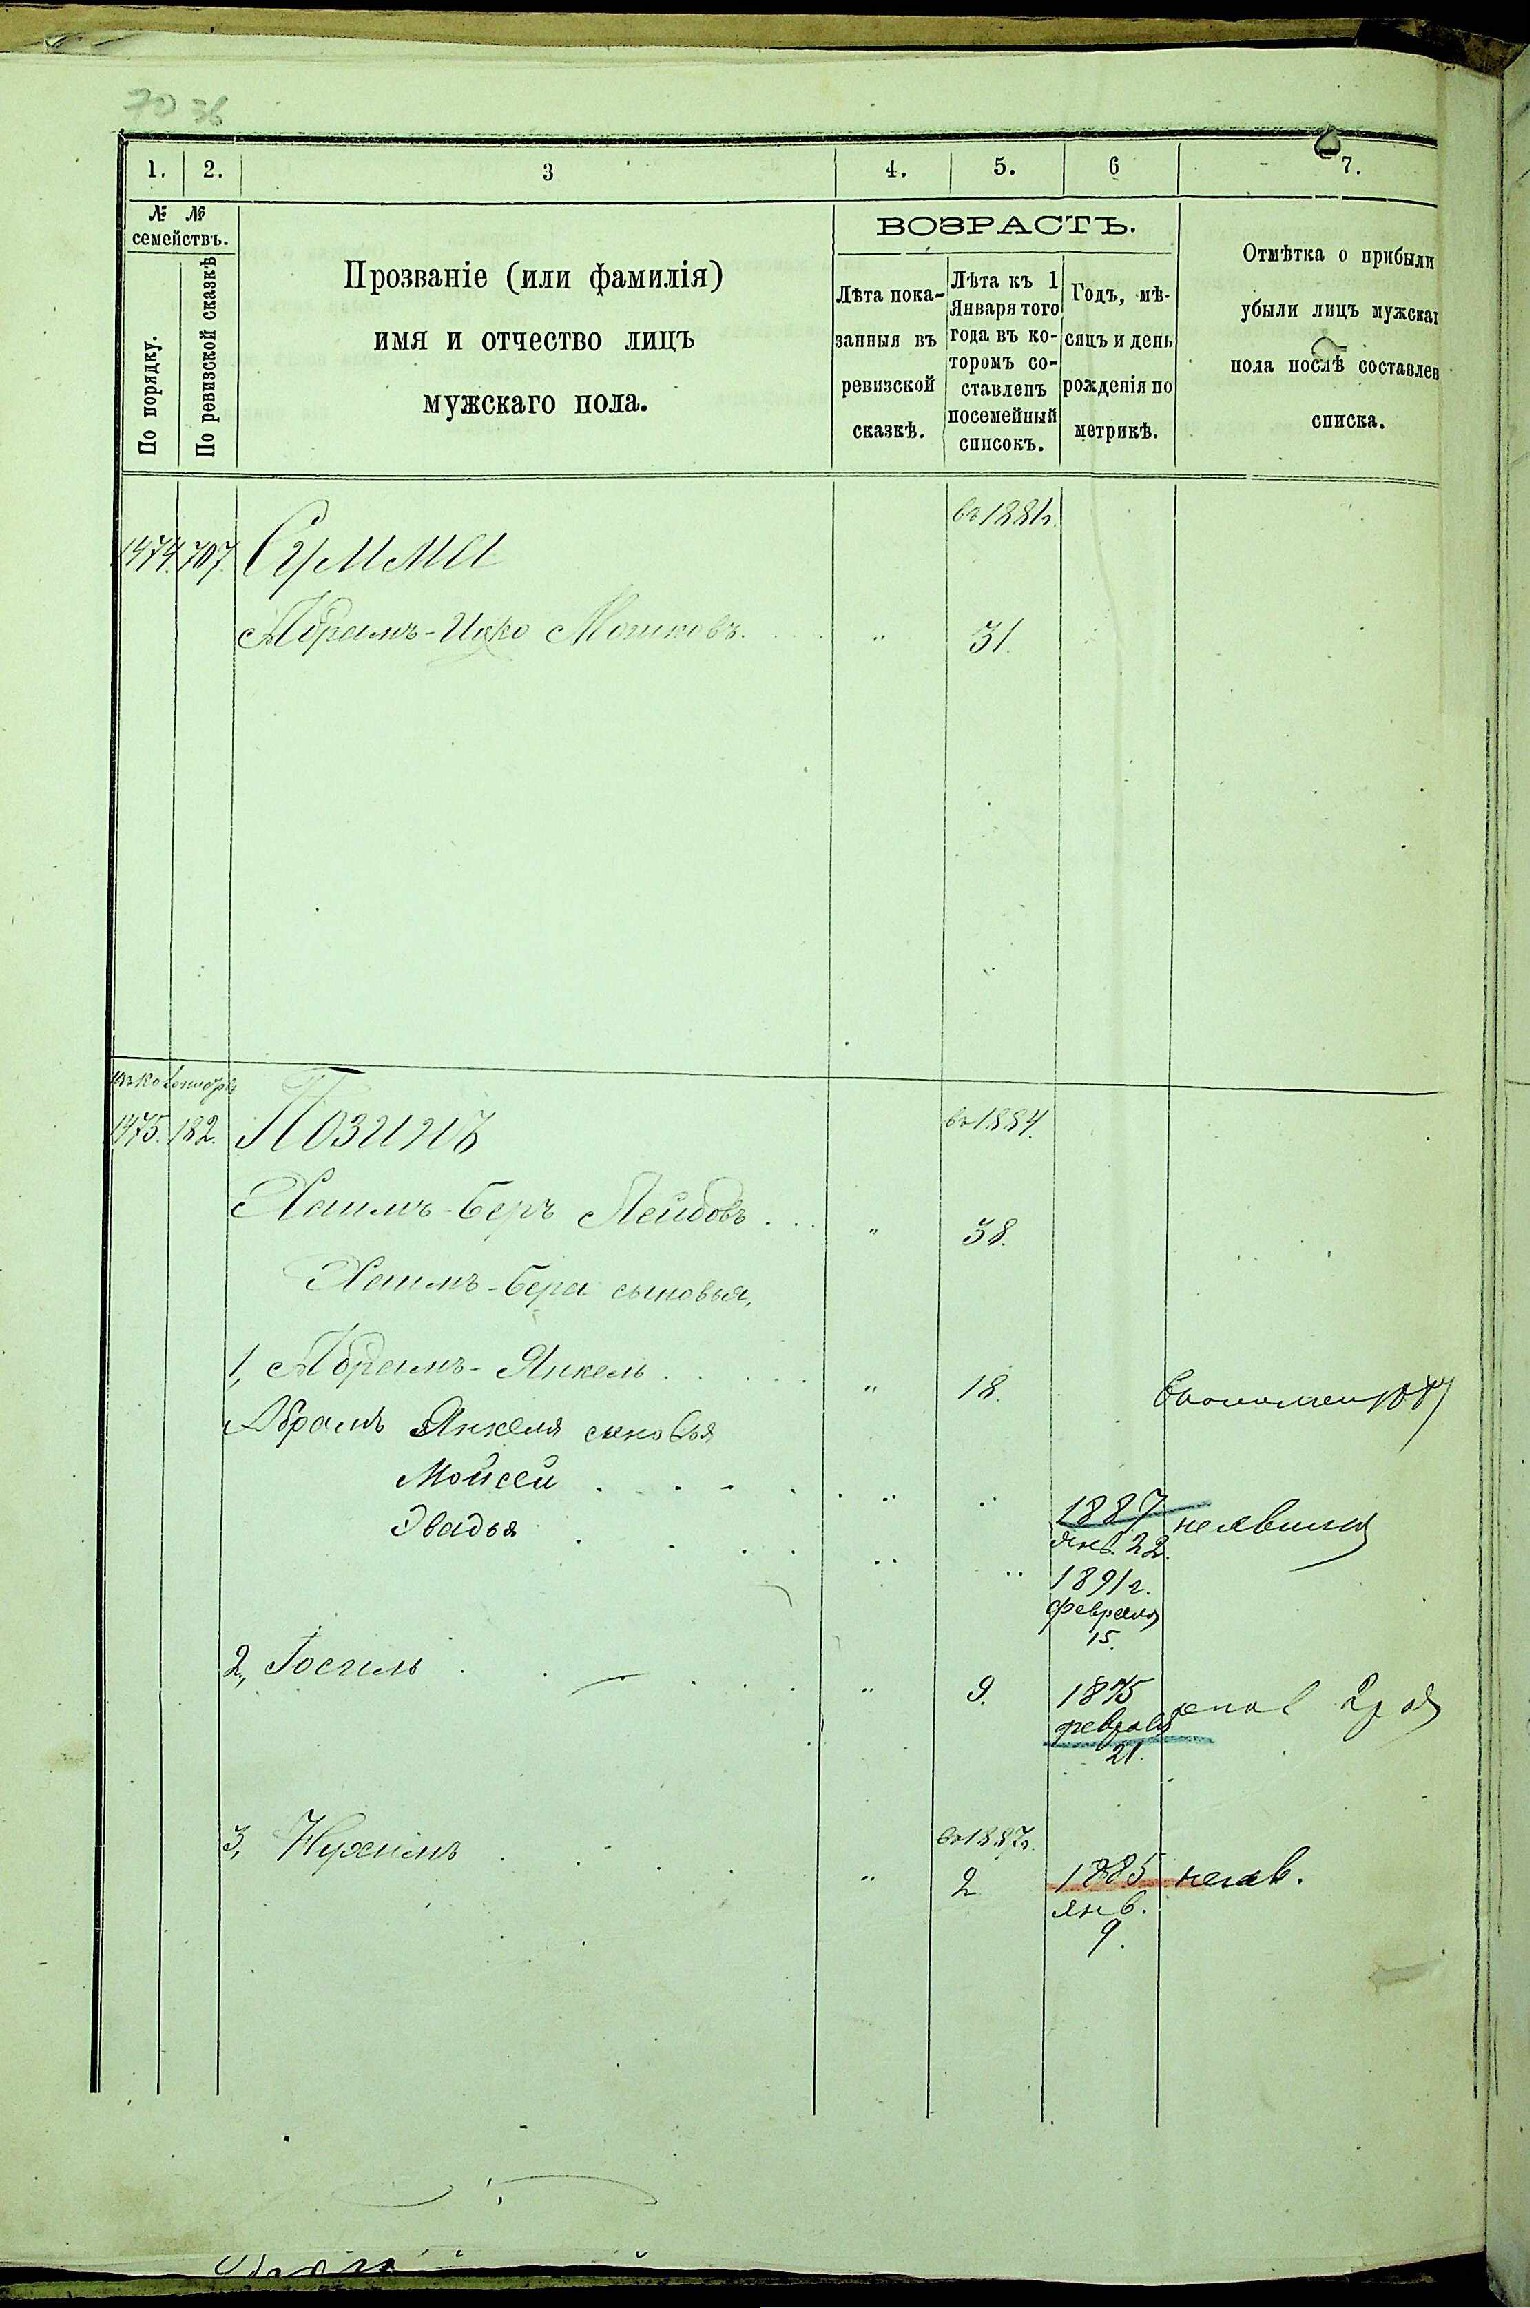 1. 2. 3 4. 5. 6 7.
№ №
семействъ.
По порядку.
По ревизской сказкѣ
Прозваніе (или фамилія)
имя и отчество лицъ
мужскаго пола.
ВОЗРАСТЪ.
Лѣта пока-
занныя въ
ревизской
сказкѣ.
Лѣта къ 1
Января того
года въ ко-
торомъ со-
ставленъ
посемейный
списокъ.
Годъ, мѣ-
сяцъ и день
рожденія по
метрикѣ.
Отмѣтка о прибыли
убыли лицъ мужскаг
пола послѣ составлен
списка.
въ 1881г.
1474. 707. Сумы
Абрамъ-Ицко Мошковъ. " 31.
1475. 182. Позинъ въ 1884.
Хаимъ-Беръ Лейбовъ " 38.
Хаимъ-Бера сыновья,
1, Абрамъ-Янкель " 18.
Абрамъ Янкеля сыновья
Мойсей " " 1887
янв. 22.
неявился
Эвадья " " 1891г.
февраля
15.
2, Іосель " 9. 1875
февраля
21.
въ 1887г.
3, Нухимъ " 2 1885 неяв.
янв.
9.